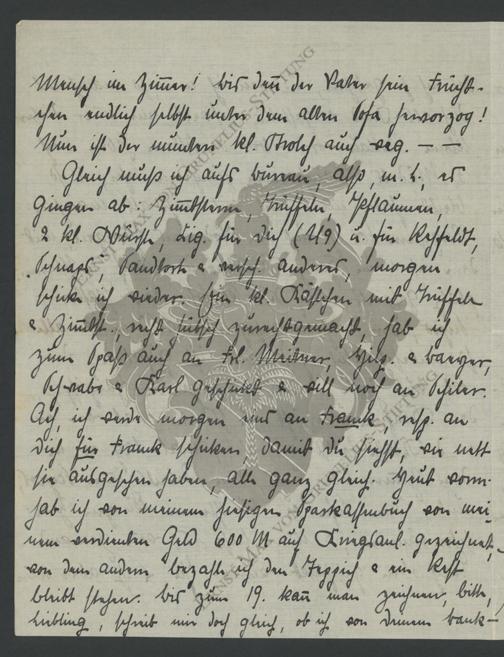 Mensch im Zimmer! bis denn der Vater sein Frücht-
chen endlich selbst unter dem alten Sofa hervorzog!
Nun ist der muntere kl. Strolch auch weg. — —
Gleich muß ich aufs Bureau, also, m. L., es
gingen ab: Zimtsterne, Trüffeln, Pflaumen,
2 kl. Würste, Zig. für dich (119) u. für Rehfeldt,
Schnaps, & versch. anderes, morgen
schick ich wieder. Ein kl. Kästchen mit Trüffeln
& Zimtst., recht hübsch zurechtgemacht, hab ich
zum Spaß auch an Frl. Meitner, & Baeyer,
Schwabe & Karl geschickt & will noch an Schiler.
Ach, ich werde morgen eins an Franck, resp. an
dich für Franck schicken, damit du siehst, wie nett
sie ausgesehen haben, alle ganz gleich. Heut vorm.
hab ich von meinem hiesigen Sparkassenbuch von mei-
nem verdienten Geld 600 M auf Kriegsanl. gezeichnet,
von dem andern bezahle ich den Teppich & ein Rest
bleibt stehen. Bis zum 19. kann man zeichnen, bitte,
Liebling, schreib mir doch gleich, ob ich von Deinem Bank-
ERNST MAX VON GRUNELIUS-STIFTUNG